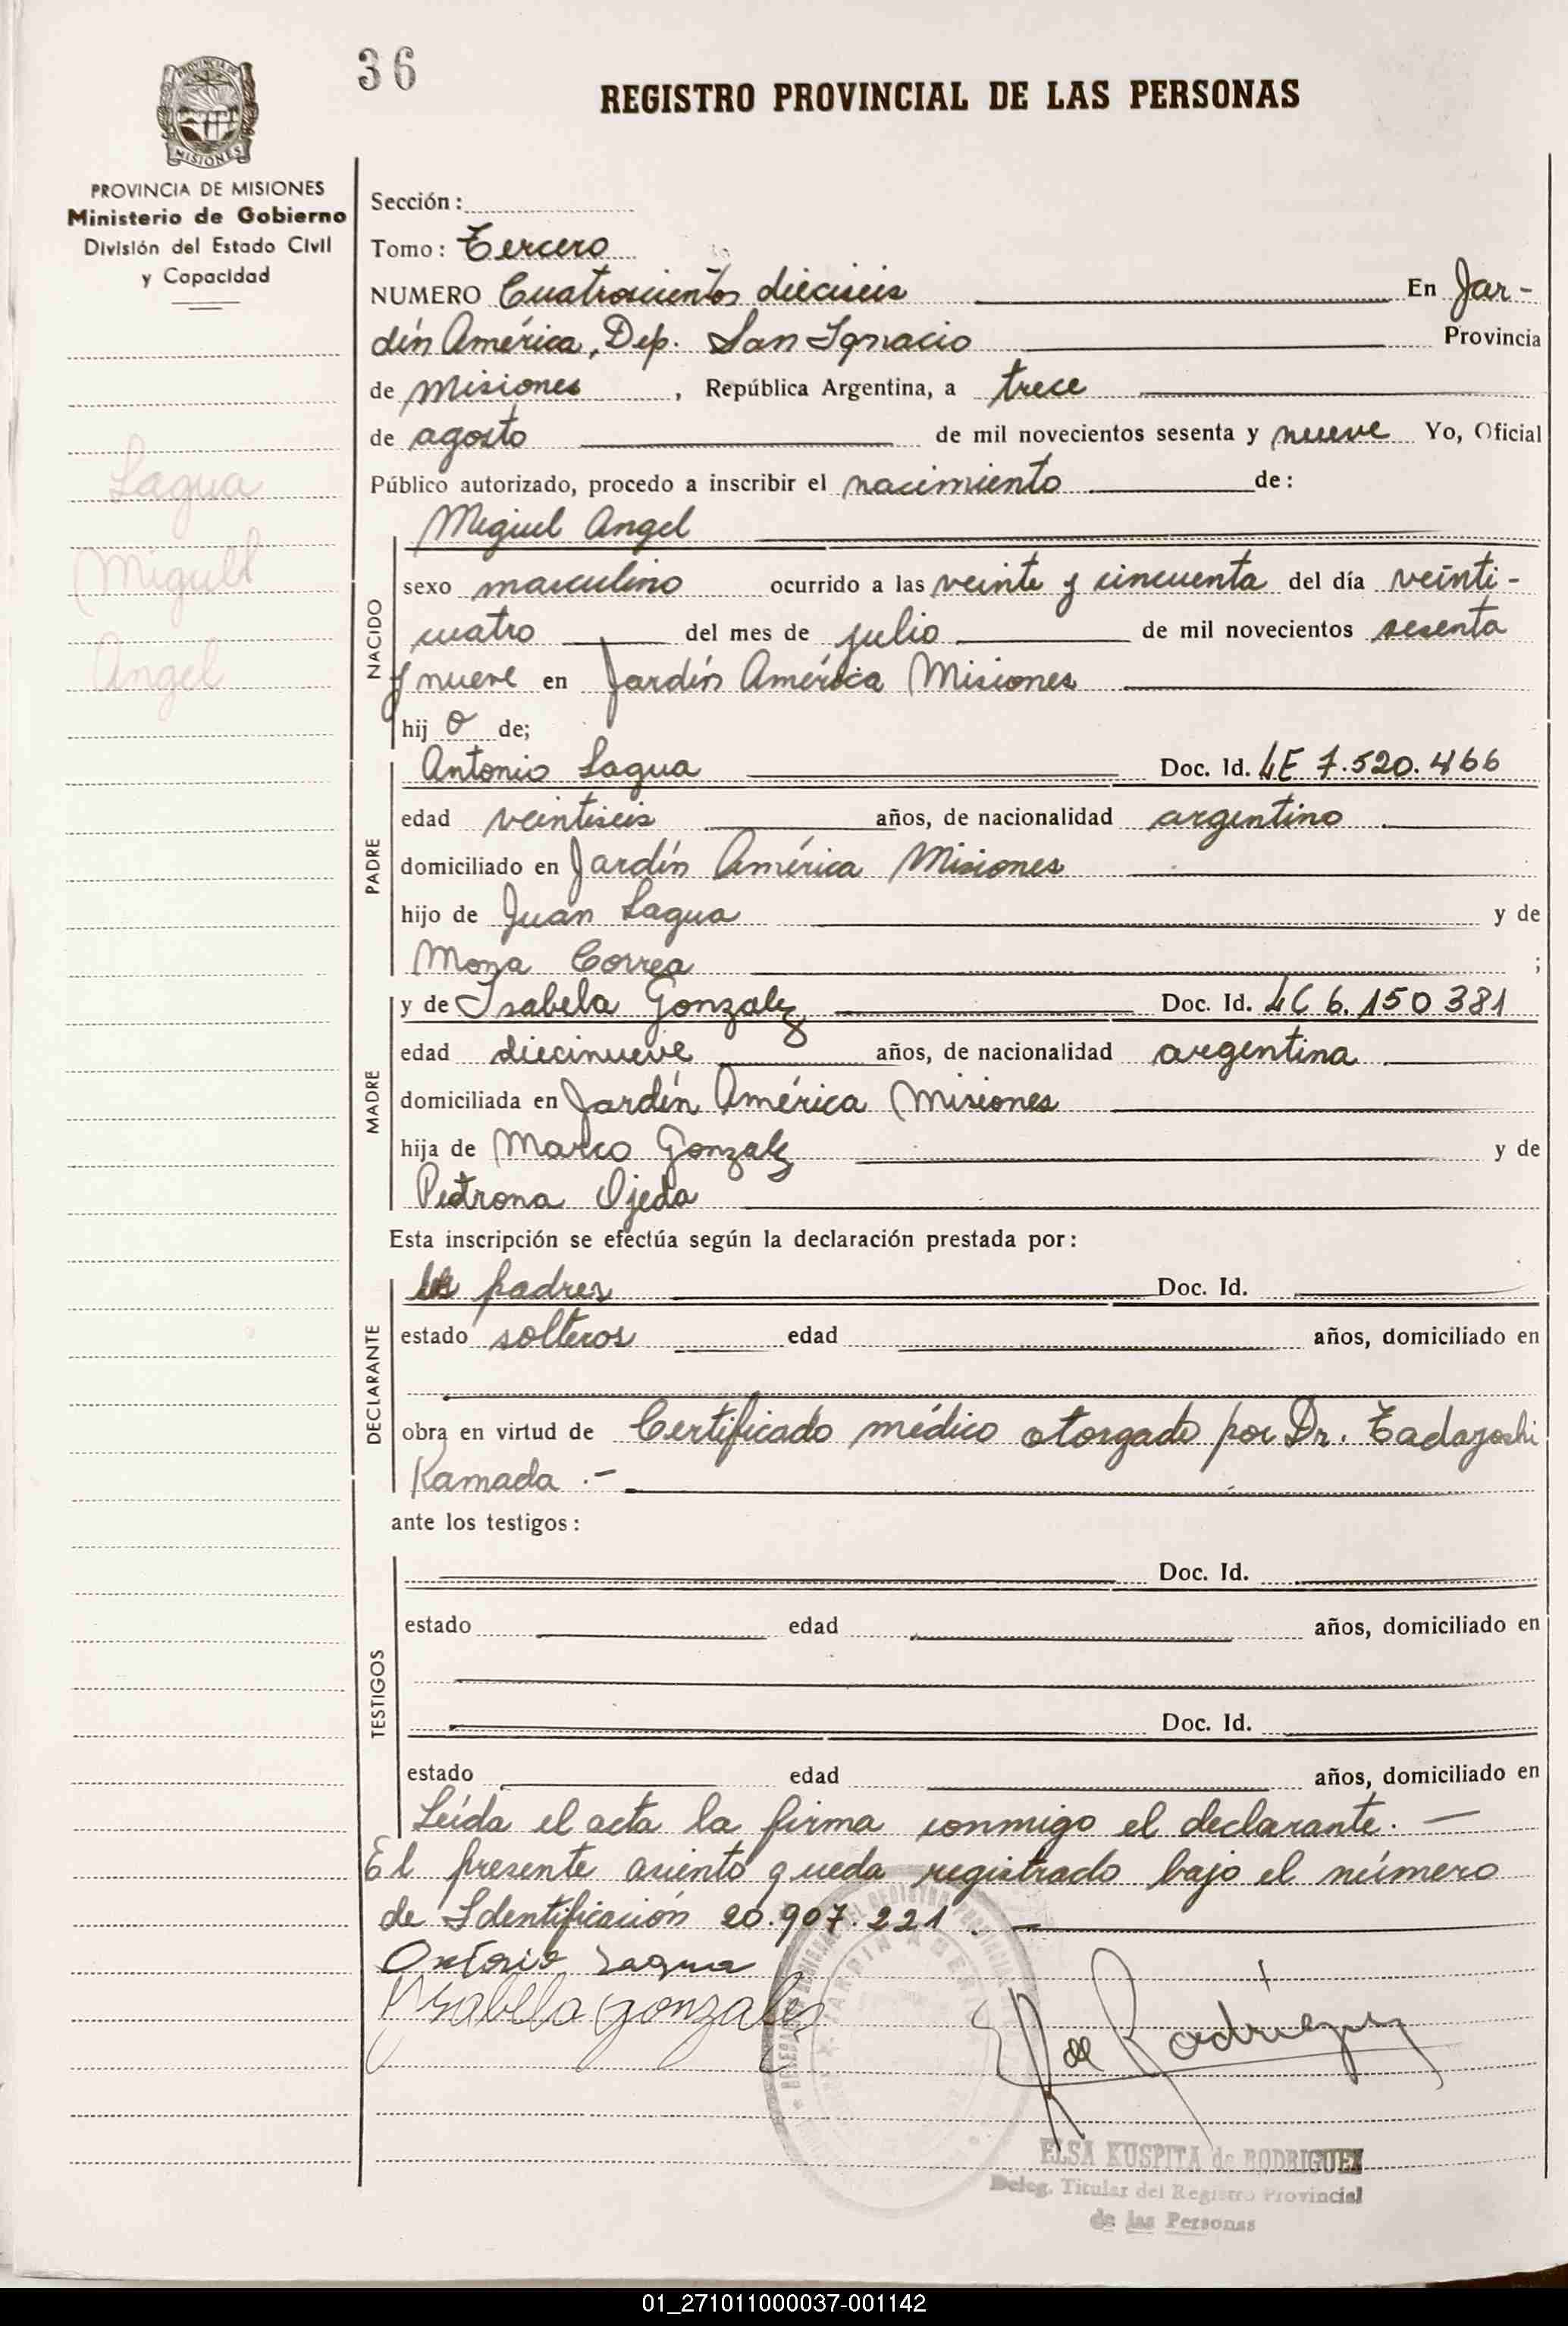 36
REGISTRO PROVINCIAL DE LAS PERSONAS
PROVINCIA DE MISIONES
Ministerio de Gobierno
División del Estado Civil
y Capacidad
Lagua
Miguel
Angel
Sección:
Tomo: Tercero
NUMERO Cuatroscientos dieciseis En Jar-
dín América, Dep. San Ignacio Provincia
de Misiones, República Argentina, a trece
de agosto de mil novecientos sesenta y nueve Yo, Oficial
Público autorizado, procedo a inscribir el nacimiento de:
NACIDO
Miguel Angel
sexo masculino ocurrido a las veinte y cincuenta del día veinti-
cuatro del mes de julio de mil novecientos sesenta
y nueve en Jardín América Misiones
hijo de;
PADRE
Antonio Lagua Doc. Id. LE 7.520.466
edad veintiseis años, de nacionalidad argentino
domiciliado en Jardín América Misiones
hijo de Juan Lagua y de
Correa ;
MADRE
y de Isabela Gonzalez Doc. Id. LC 6.150 381
edad diecinueve años, de nacionalidad argentina
domiciliada en Jardín América Misiones
hija de Marco Gonzalez y de
Petrona Ojeda
Esta inscripción se efectúa según la declaración prestada por:
DECLARANTE
los padres Doc. Id.
estado solteros edad años, domiciliado en
obra en virtud de Certificado médico otorgado por Dr. Tadayoshi
Kamada .-
ante los testigos:
TESTIGOS
Doc. Id.
estado edad años, domiciliado en
Doc. Id.
estado edad años, domiciliado en
Leída el acta la firma conmigo el declarante. —
El presente asiento queda registrado bajo el número
de Identificación 20.907.221. —
Antonio Lagua
Ysabela gonzalez
de Rodríguez
JARDIN AMERICA
ELSA KUSPITA de RODRIGUEZ
Deleg. Titular del Registro Provincial
de las Personas
01_271011000037-001142